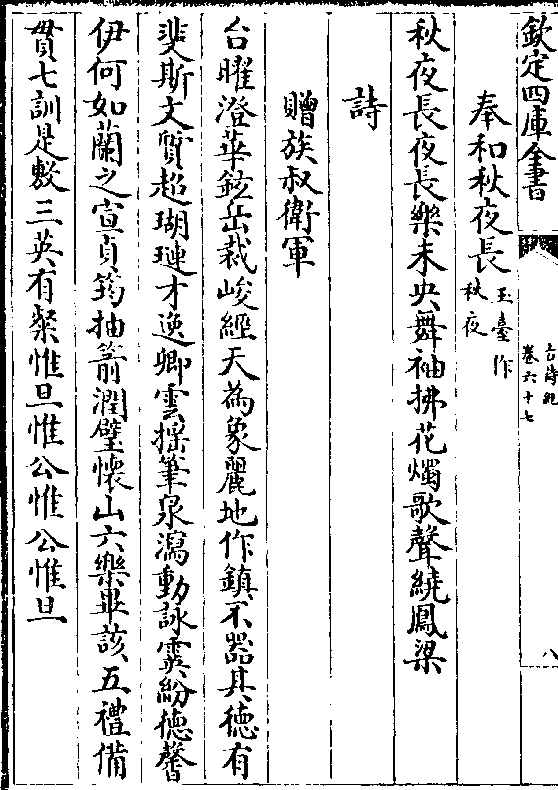 欽定四庫全書
古詩紀
卷六十七
八
奉和秋夜長
玉臺作
秋夜
秋夜長夜長樂未央舞袖拂花燭歌聲繞鳳梁
詩
贈族叔衛軍
台曜澄華鉉岳裁峻經天為象麗地作鎮不器其德有
斐斯文質超瑚璉才逸卿雲揺筆泉瀉動詠雲紛德馨
伊何如蘭之宣貞筠抽箭潤璧懷山六樂畢該五禮備
貫七訓是敷三英有粲惟旦惟公惟公惟旦